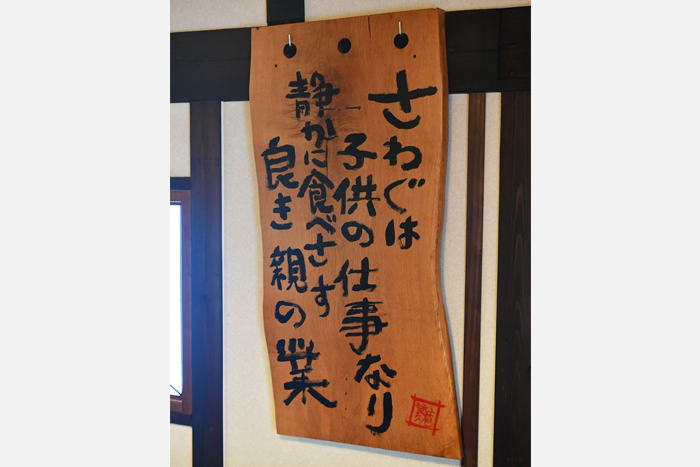 さわぐは
子供の仕事なり
静かに食べさす
良き親の業